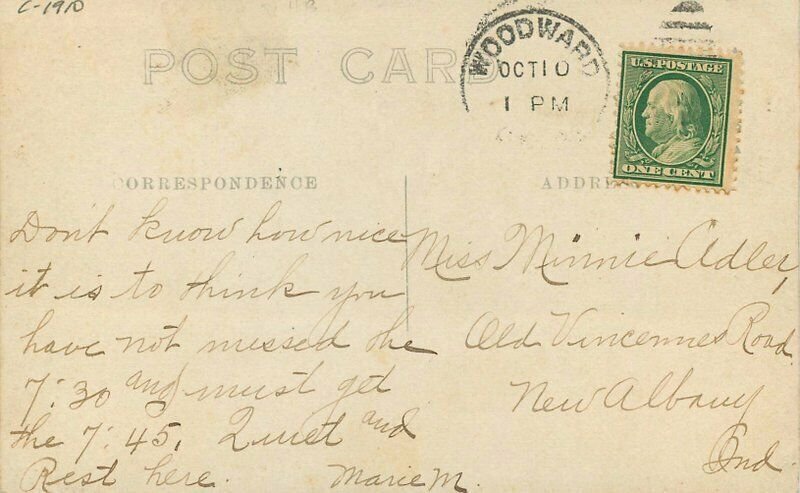 C-1910
POST CARD
WOODWARD
OCT 10
1 PM
U.S. POSTAGE
ONE CENT
CORRESPONDENCE
ADDRESS
Don't know how nice
it is to think you
have not missed the
7:30 and must get
the 7:45. Quiet and
Rest here. Marie M.
Miss Minnie Adler,
Old Vincennes Road
New Albany
Ind